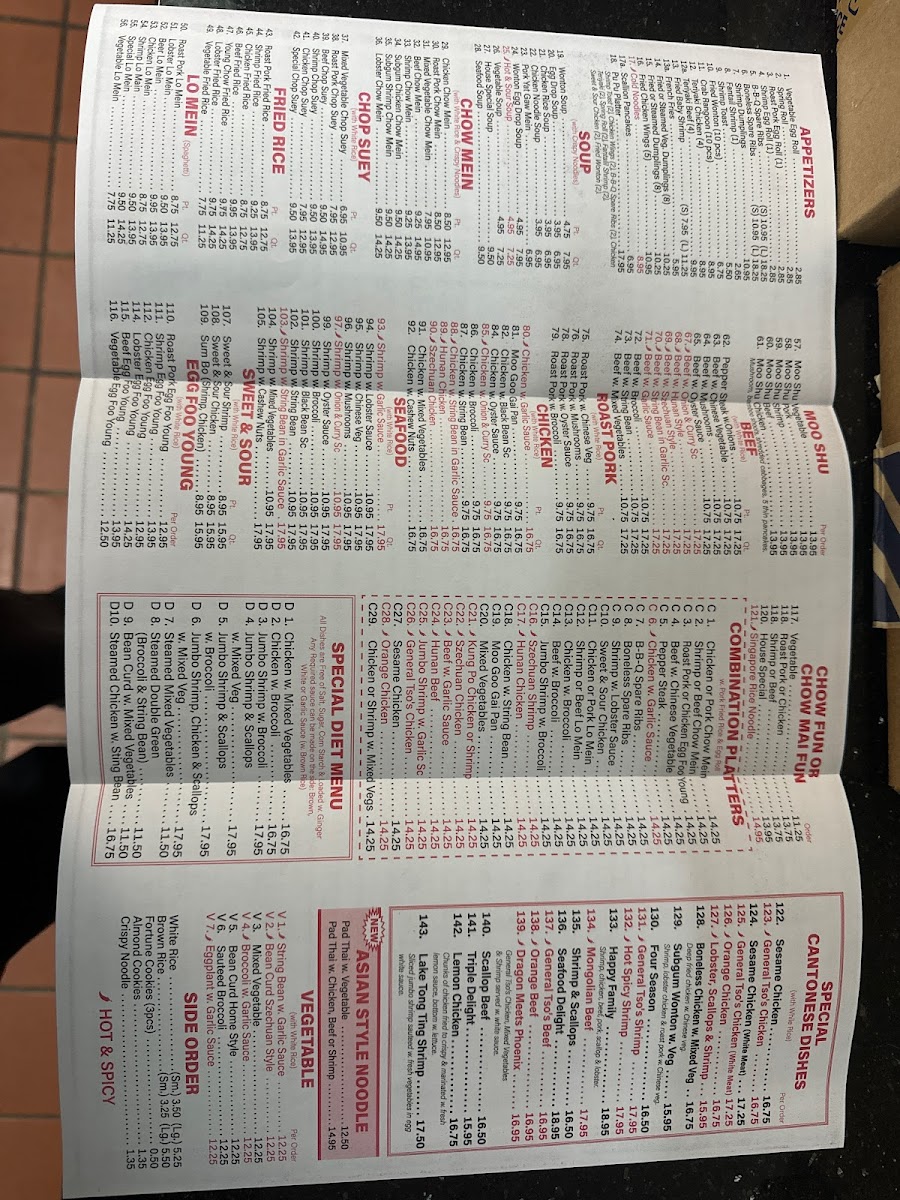 APPETIZERS
1. Vegetable Egg Roll 2.85
2. Spring Roll 2.85
3. Roast Pork Egg Roll (1) 2.85
4. Shrimp Egg Roll (1) 2.85
5. B-B-Q Spare Ribs (S) 10.95 (L) 18.25
6. Boneless Spare Ribs (S) 10.95 (L) 18.25
Shrimp Dumplings 10.95
7. Fantail Shrimp (1) 2.65
8. Shrimp Toast 5.50
9. Fried Wonton (10 pcs) 6.75
10. Crab Rangoon (10 pcs) 8.95
11. Teriyaki Chicken (4) 8.95
12. Teriyaki Beef (4) 9.95
13. Fried Baby Shrimp (S) 7.95 (L) 11.25
13a. French Fries 5.95
14. Fried or Steamed Veg. Dumplings (8) 10.25
15. Fried or Steamed Dumplings (8) 10.25
16. Fried Chicken Wings (5) 10.95
17. Cold Noodles 8.95
17a. Scallion Pancakes 6.95
18. Pu Pu Platter 17.95
SOUP
(with Crispy Noodles) Pt. Qt.
19. Wonton Soup 4.75 7.95
20. Egg Drop Soup 3.95 6.95
21. Chicken Rice Soup 3.95 6.95
22. Chicken Noodle Soup 3.95 6.95
23. Pork Yat Gaw Mein 6.95
24. Wonton Egg Drop Soup 4.95 7.95
25. Hot & Sour Soup 4.95 7.25
26. Vegetable Soup 4.95 7.25
27. House Special Soup 9.50
28. Seafood Soup 9.50
CHOW MEIN
(with White Rice & Crispy Noodles) Pt. Qt.
29. Chicken Chow Mein 8.50 12.95
30. Roast Pork Chow Mein 8.50 12.95
31. Mixed Vegetable Chow Mein 7.95 10.95
32. Beef Chow Mein 9.25 14.25
33. Shrimp Chow Mein 9.25 14.25
34. Subgum Chicken Chow Mein 9.50 14.25
35. Subgum Shrimp Chow Mein 9.50 14.25
36. Lobster Chow Mein 9.50 14.25
CHOP SUEY
(with White Rice) Pt. Qt.
37. Mixed Vegetable Chop Suey 6.95 10.95
38. Roast Pork Chop Suey 7.95 12.95
39. Beef Chop Suey 9.50 14.95
40. Shrimp Chop Suey 9.50 13.95
41. Chicken Chop Suey 7.95 12.95
42. Special Chop Suey 9.50 13.95
FRIED RICE Pt. Qt.
43. Roast Pork Fried Rice 8.75 12.75
44. Shrimp Fried Rice 9.25 13.95
45. Chicken Fried Rice 8.75 12.75
46. Beef Fried Rice 9.95 13.95
47. Young Chow Fried Rice 9.75 14.25
48. Lobster Fried Rice 9.75 14.25
49. Vegetable Fried Rice 7.75 11.25
LO MEIN (Spaghetti) Pt. Qt.
50. Roast Pork Lo Mein 8.75 12.75
51. Lobster Lo Mein 9.50 14.25
52. Beef Lo Mein 9.95 13.95
53. Chicken Lo Mein 8.75 12.75
54. Shrimp Lo Mein 9.50 13.95
55. Special Lo Mein 9.50 14.25
56. Vegetable Lo Mein 7.75 11.25
MOO SHU Per Order
57. Moo Shu Vegetable 13.95
58. Moo Shu 13.95
59. Moo Shu 13.95
60. Moo Shu 13.95
61. Moo Shu 13.95
BEEF
(with White Rice) Pt. Qt.
62. Pepper Steak w. Onions 10.75 17.25
63. Beef w. Vegetable 10.75 17.25
64. Beef w. Mushrooms 10.75 17.25
65. Beef w. Oyster Sauce 10.75 17.25
67. Beef w. Onion & Curry Sc 17.25
68. Hunan Style 17.25
69. Szechuan Style 17.25
70. Beef w. String Bean in Garlic Sc. 17.25
71. Beef w. Garlic Sauce 10.75 17.25
72. Beef w. Broccoli 10.75 17.25
73. Beef w. String Bean 10.75 17.25
74. Beef w. Mixed Vegetables 10.75 17.25
ROAST PORK
(with White Rice) Pt. Qt.
75. Roast Pork w. Chinese Veg 9.75 16.75
76. Roast Pork w. Mushrooms 9.75 16.75
78. Roast Pork w. Oyster Sauce 9.75 16.75
79. Roast Pork w. Broccoli 9.75 16.75
CHICKEN
(with White Rice) Pt. Qt.
80. Chicken w. Garlic Sauce 16.75
81. Moo Goo Gai Pan 9.75 16.75
82. Chicken w. Black Bean Sc 9.75 16.75
84. Chicken w. Oyster Sauce 9.75 16.75
85. Chicken w. Onion & Curry Sc 9.75 16.75
86. Chicken w. Broccoli 9.75 16.75
87. Chicken w. String Bean 9.75 16.75
88. Chicken w. String Bean in Garlic Sauce 16.75
89. Hunan Chicken 16.75
90. Szechuan Chicken 16.75
91. Chicken w. Mixed Vegetables 16.75
92. Chicken w. Cashew Nuts 16.75
SEAFOOD
(with White Rice) Pt. Qt.
93. Shrimp w. Garlic Sauce 17.95
94. Shrimp w. Lobster Sauce 10.95 17.95
95. Shrimp w. Chinese Veg 10.95 17.95
96. Shrimp w. Mushrooms 10.95 17.95
97. Shrimp w. Onion & Curry Sc 10.95 17.95
99. Shrimp w. Oyster Sauce 10.95 17.95
100. Shrimp w. Broccoli 10.95 17.95
101. Shrimp w. Black Bean Sc 10.95 17.95
102. Shrimp w. String Bean 10.95 17.95
103. Shrimp w. String Bean in Garlic Sauce 17.95
104. Shrimp w. Mixed Vegetables 10.95 17.95
105. Shrimp w. Cashew Nuts 17.95
SWEET & SOUR
(with White Rice) Pt. Qt.
107. Sweet & Sour Shrimp 8.95 15.95
108. Sweet & Sour Chicken 8.95 15.95
109. Sum Bo (Shrimp, Chicken) 8.95 15.95
EGG FOO YOUNG
(with White Rice) Per Order
110. Roast Pork Egg Foo Young 12.95
111. Shrimp Egg Foo Young 13.95
112. Chicken Egg Foo Young 12.95
114. Lobster Egg Foo Young 14.25
115. Beef Egg Foo Young 13.95
116. Vegetable Egg Foo Young 12.50
CHOW FUN OR
CHOW MAI FUN Order
117. Vegetable 11.25
118. Roast Pork or Chicken 13.75
119. Shrimp or Beef 13.75
120. House Special 13.95
121. Singapore Rice Noodle 14.95
COMBINATION PLATTERS
w. Pork Fried Rice & Egg Roll
C 1. Chicken or Pork Chow Mein 14.25
C 2. Shrimp or Beef Chow Mein 14.25
C 3. Roast Pork or Chicken Egg Foo Young 14.25
C 4. Beef w. Chinese Vegetable 14.25
C 5. Pepper Steak 14.25
C 6. Chicken w. Garlic Sauce 14.25
C 7. B-B-Q Spare Ribs 14.25
C 8. Boneless Spare Ribs 14.25
C 9. Shrimp w. Lobster Sauce 14.25
C10. Sweet & Sour Chicken 14.25
C11. Chicken or Pork Lo Mein 14.25
C12. Shrimp or Beef Lo Mein 14.25
C13. Chicken w. Broccoli 14.25
C14. Beef w. Broccoli 14.25
C15. Jumbo Shrimp w. Broccoli 14.25
C16. Szechuan Shrimp 14.25
C17. Hunan Chicken 14.25
C18. Chicken w. String Bean 14.25
C19. Moo Goo Gai Pan 14.25
C20. Mixed Vegetables 14.25
C21. Kung Po Chicken or Shrimp 14.25
C22. Szechuan Chicken 14.25
C23. Beef w. Garlic Sauce 14.25
C24. Hunan Beef 14.25
C25. Jumbo Shrimp w. Garlic Sc 14.25
C26. General Tso's Chicken 14.25
C27. Sesame Chicken 14.25
C28. Orange Chicken 14.25
C29. Chicken or Shrimp w. Mixed Vegs 14.25
SPECIAL DIET MENU
All Dishes are Free of Salt, Sugar, Corn Starch & Loaded w. Ginger
Any Required sauce can be made on the side: Brown,
White or Garlic Sauce (w. Brown Rice)
D 1. Chicken w. Mixed Vegetables 16.75
D 2. Chicken w. Broccoli 16.75
D 3. Jumbo Shrimp w. Broccoli 17.95
D 4. Jumbo Shrimp & Scallops
w. Mixed Veg. 17.95
D 5. Jumbo Shrimp & Scallops
w. Broccoli 17.95
D 6. Jumbo Shrimp, Chicken & Scallops
w. Mixed Veg. 17.95
D 7. Steamed Mixed Vegetables 11.50
D 8. Steamed Double Green
(Broccoli & String Bean) 11.50
D 9. Bean Curd w. Mixed Vegetables 11.50
D10. Steamed Chicken w. String Bean 16.75
SPECIAL
CANTONESE DISHES
(with White Rice) Per Order
122. Sesame Chicken 16.75
123. General Tso's Chicken 16.75
124. Sesame Chicken (White Meat) 17.25
125. General Tso's Chicken (White Meat) 17.25
126. Orange Chicken 16.75
127. Lobster, Scallops & Shrimp 15.95
128. Boneless Chicken w. Mixed Veg 16.75
Deep fried chicken w. Chinese veg.
129. Subgum Wonton w. Veg 15.95
Shrimp, lobster chicken & roast pork w. Chinese veg.
130. Four Season 16.50
131. General Tso's Shrimp 17.95
132. Hot Spicy Shrimp 17.95
133. Happy Family 18.95
Shrimp, chicken, beef, pork, scallop & lobster.
134. Mongolian Beef 17.95
135. Shrimp & Scallops 16.50
136. Seafood Delight 18.95
137. General Tso's Beef 16.95
138. Orange Beef 16.95
139. Dragon Meets Phoenix 16.95
General Tso's Chicken, Mixed Vegetables
& Shrimp served w. white sauce.
140. Scallop Beef 16.50
141. Triple Delight 15.95
142. Lemon Chicken 16.75
Chunks of chicken fried to crispy & marinated w. fresh
lemon sauce, bottom w. lettuce.
143. Lake Tong Ting Shrimp 17.50
Sliced jumbo shrimp sauteed w. fresh vegetables in egg
white sauce.
NEW
ASIAN STYLE NOODLE
Pad Thai w. Vegetable 12.50
Pad Thai w. Chicken, Beef or Shrimp 14.95
VEGETABLE
(with White Rice) Per Order
V 1. String Bean w. Garlic Sauce 12.25
V 2. Bean Curd Szechuan Style 12.25
V 3. Mixed Vegetable 12.25
V 4. Broccoli w. Garlic Sauce 12.25
V 5. Bean Curd Home Style 12.25
V 6. Sauteed Broccoli 12.25
V 7. Eggplant w. Garlic Sauce 12.25
SIDE ORDER
White Rice (Sm.) 3.50 (Lg.) 5.25
Brown Rice (Sm.) 3.25 (Lg.) 5.50
Fortune Cookies (3pcs) 0.50
Almond Cookies 1.35
Crispy Noodle 1.35
HOT & SPICY